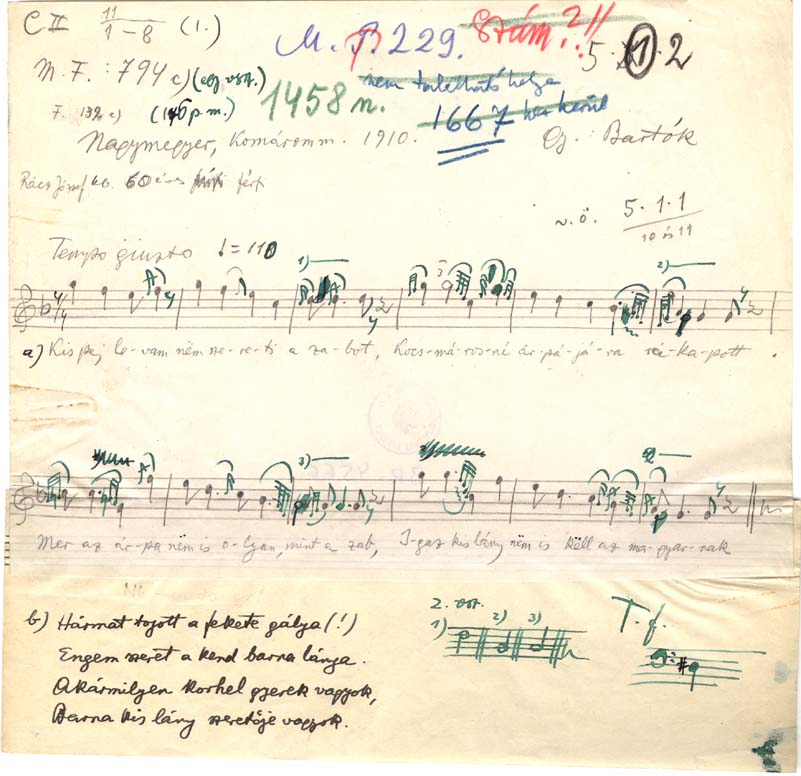 C II 11/1-8 (1.)
M. P. 229. Szám?!!
5. 1. 2
M. F. : 794 c) (egy vsz.)
nem található helye
F. 139 c) (146 p. m.) 1458 n. 1667 hez kerül
Nagymegyer, Komáromm. 1910. Gy. : Bartók
Rácz József kb. 60 éves férfi
v. ö. 5.1.1
10 és 11
Tempo giusto ♩= 110
1) 3 2)
4/4
a) Kis pej lo-vam nëm sze-re-ti a za-bot, Kocs-má-ros-né ár-pá-já-ra rá-ka-pott.
3)
Mer az ár-pa nëm is o-lyan, mint a zab, I-gaz kis lány nëm is këll az ma-gyar-nak
b) Hármat tojott a fekete gálya (!)
Engem szeret a kend barna lánya.
Akármilyen korhel gyerek vagyok,
Barna kis lány szeretője vagyok.
2. vsz.
1) 2) 3)
T. f.